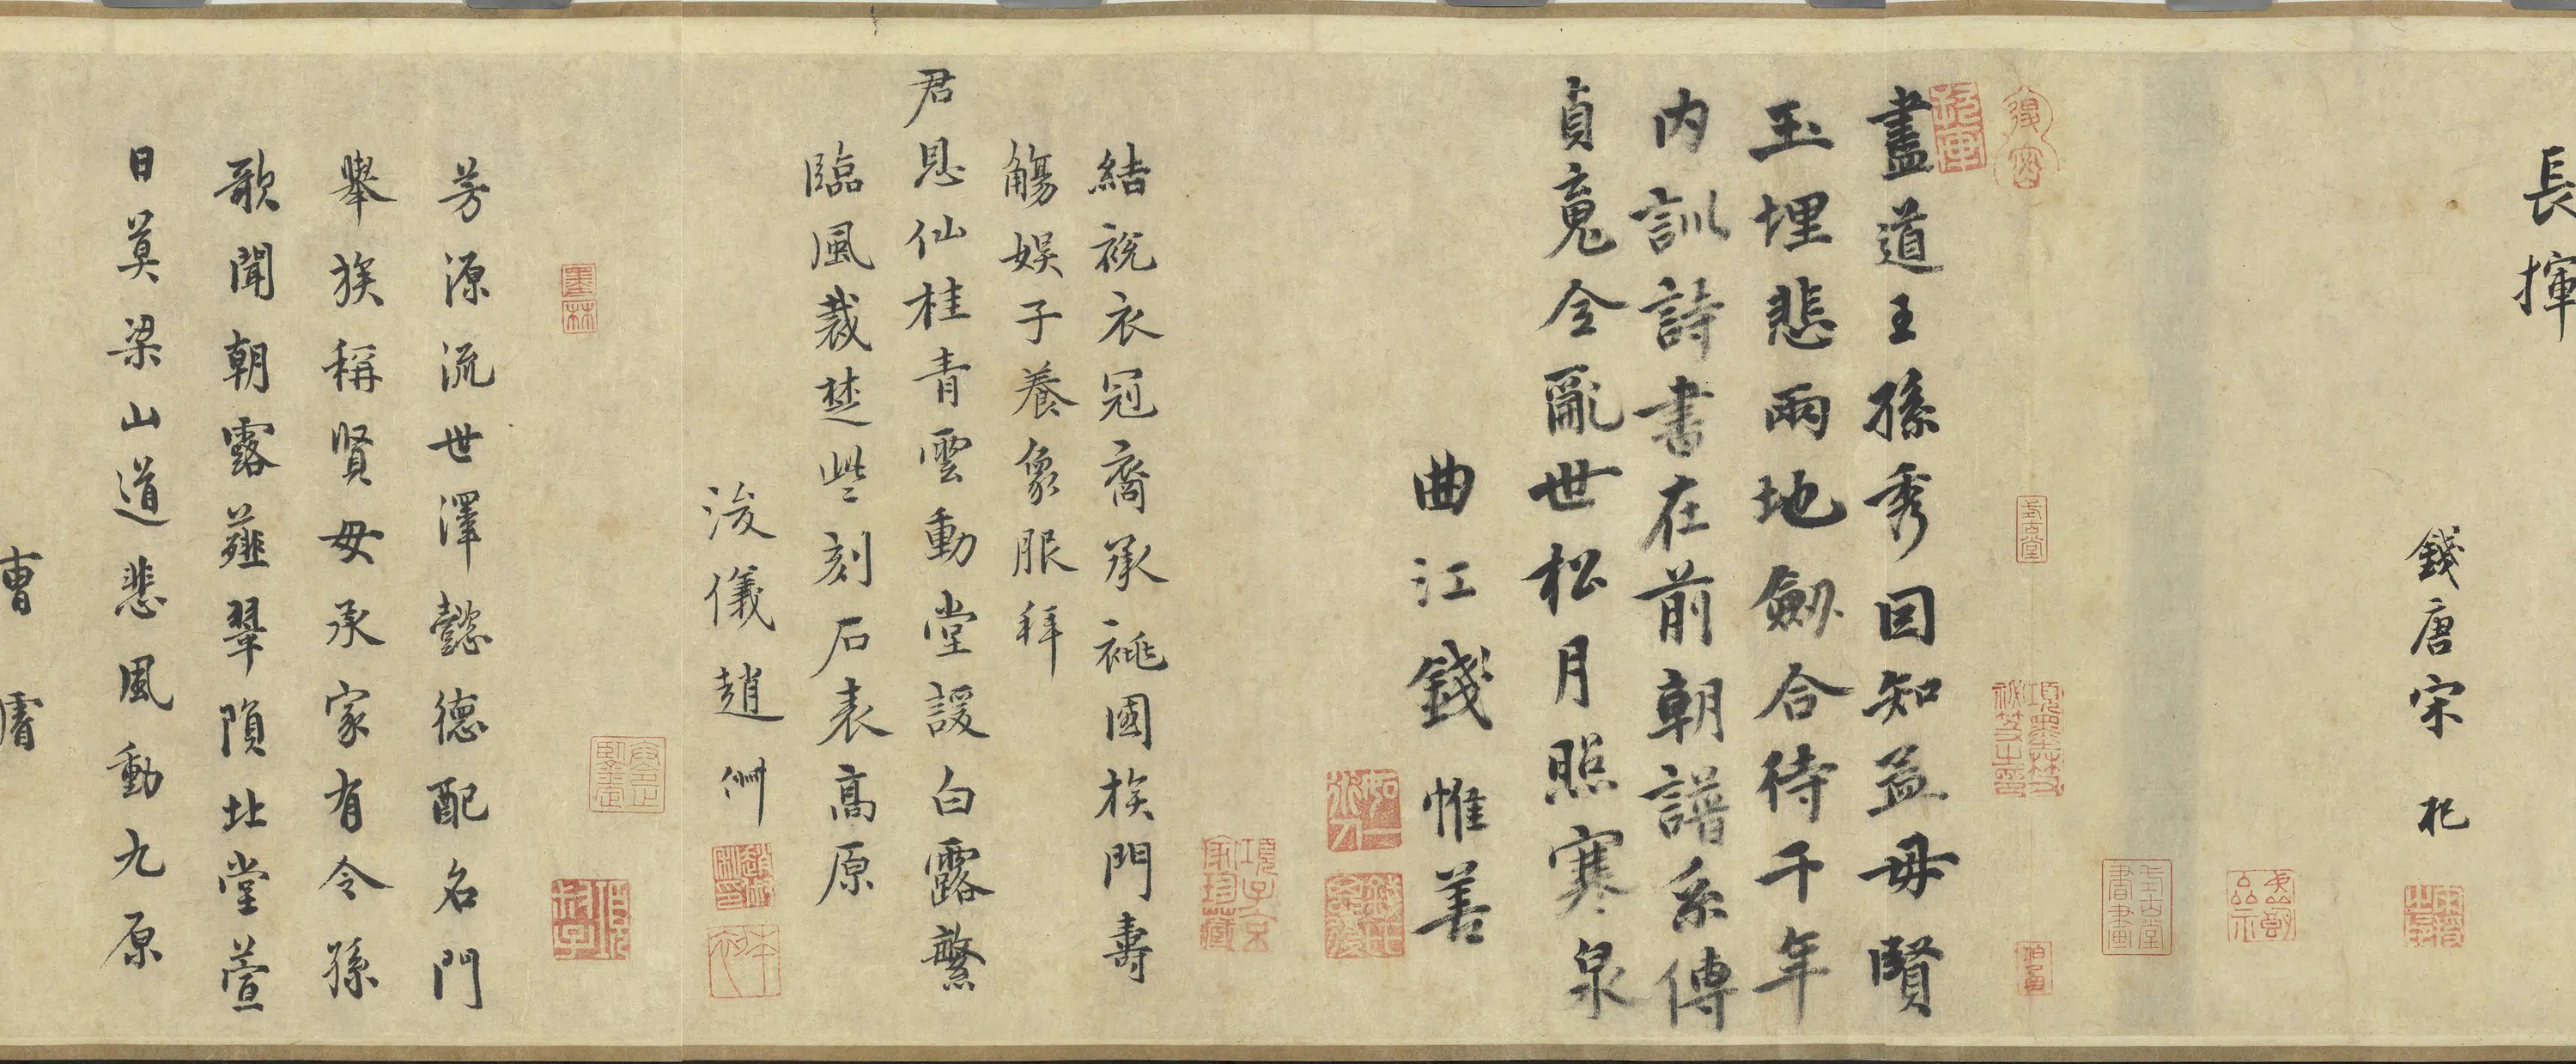 長揮
錢唐宋杞
盡道王孫秀回知孟母賢
玉埋悲兩地劔合待千年
内訓詩書在前朝譜系傳
貞䰟令亂世松月照寒泉
曲江錢惟善
結裞衣冠裔承祧國族門壽
觴娛子養象服拜
君恩仙桂青雲動堂諼白露繁
臨風裁楚些刻石表高原
浚儀趙俶
芳源流世澤懿德配名門
舉族稱賢母承家有令孫
歌聞朝露薤翬隕北堂萱
日莫梁山道悲風動九原
曹